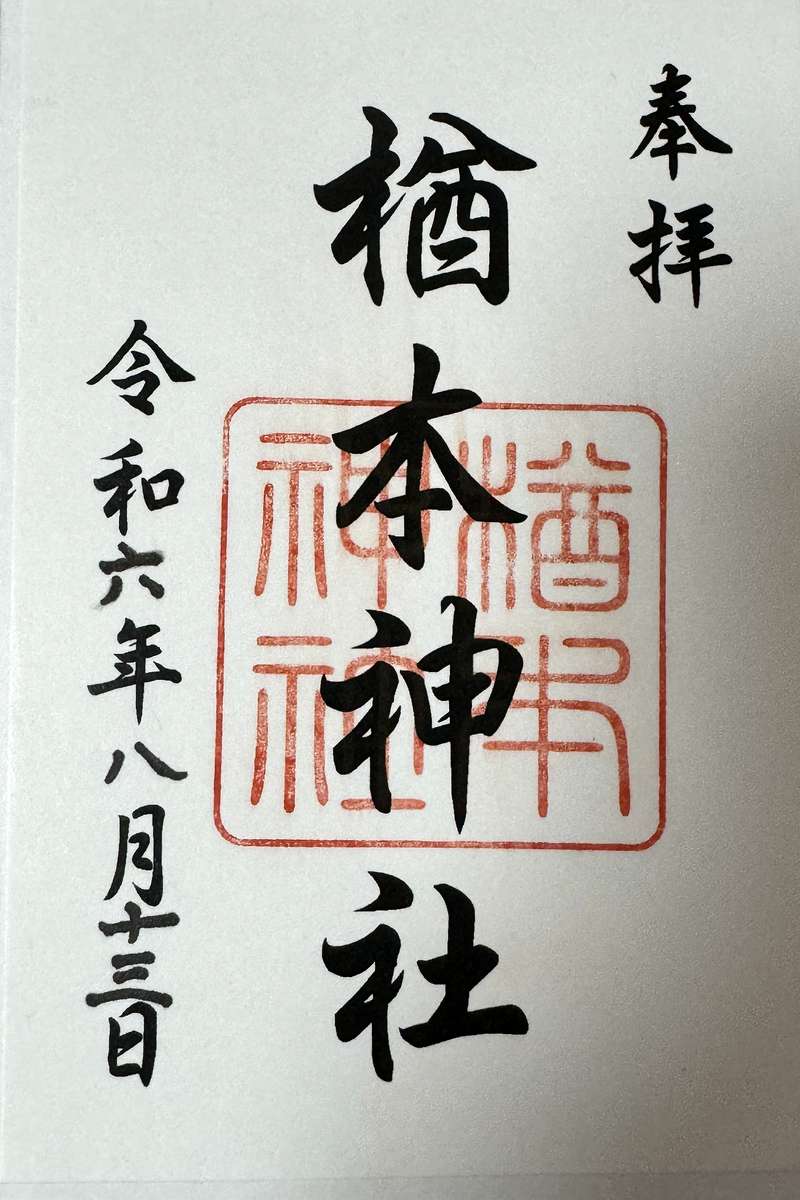 奉拝
楢本神社
令和六年八月十三日
楢本
神社